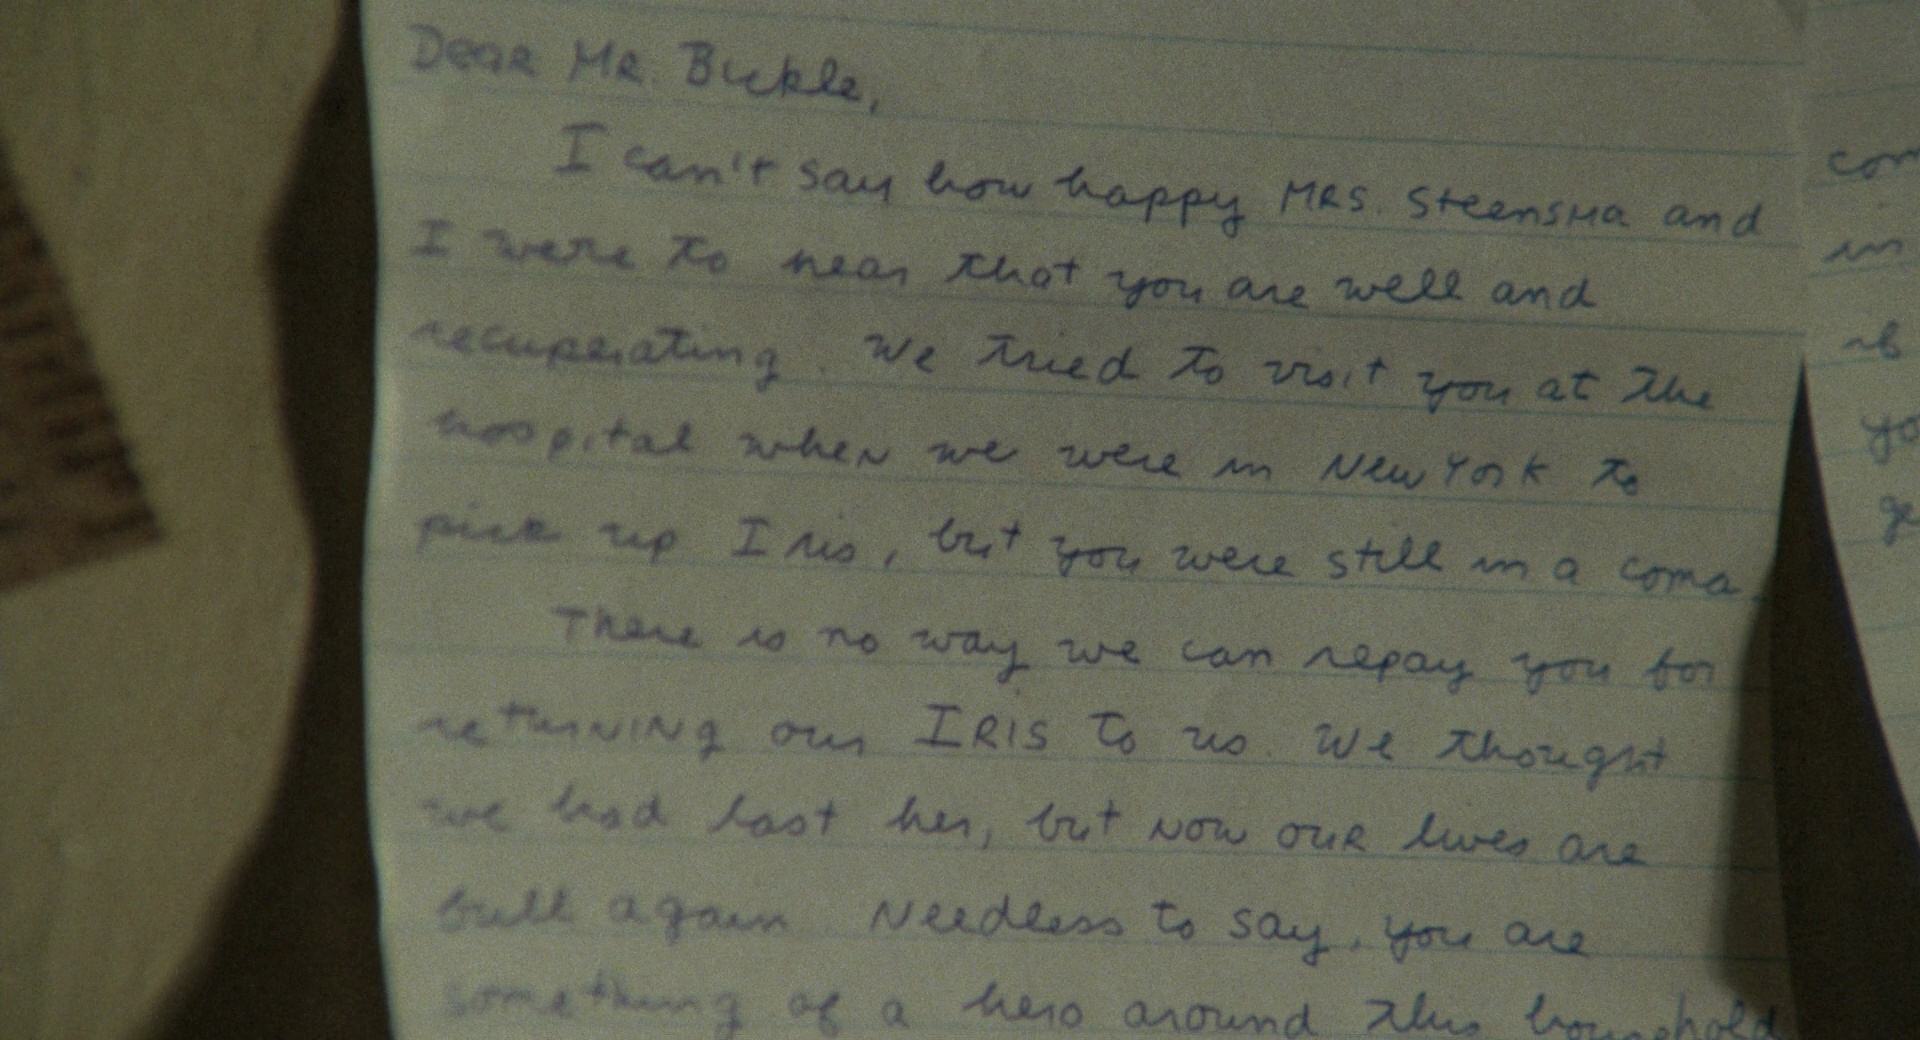 Dear Mr. Bickle,
I can't say how happy Mrs. Steensma and
I were to hear that you are well and
recuperating. We tried to visit you at the
hospital when we were in New York to
pick up Iris, but you were still in a coma.
There is no way we can repay you for
returning our Iris to us. We thought
we had lost her, but now our lives are
full again. Needless to say, you are
something of a hero around this household